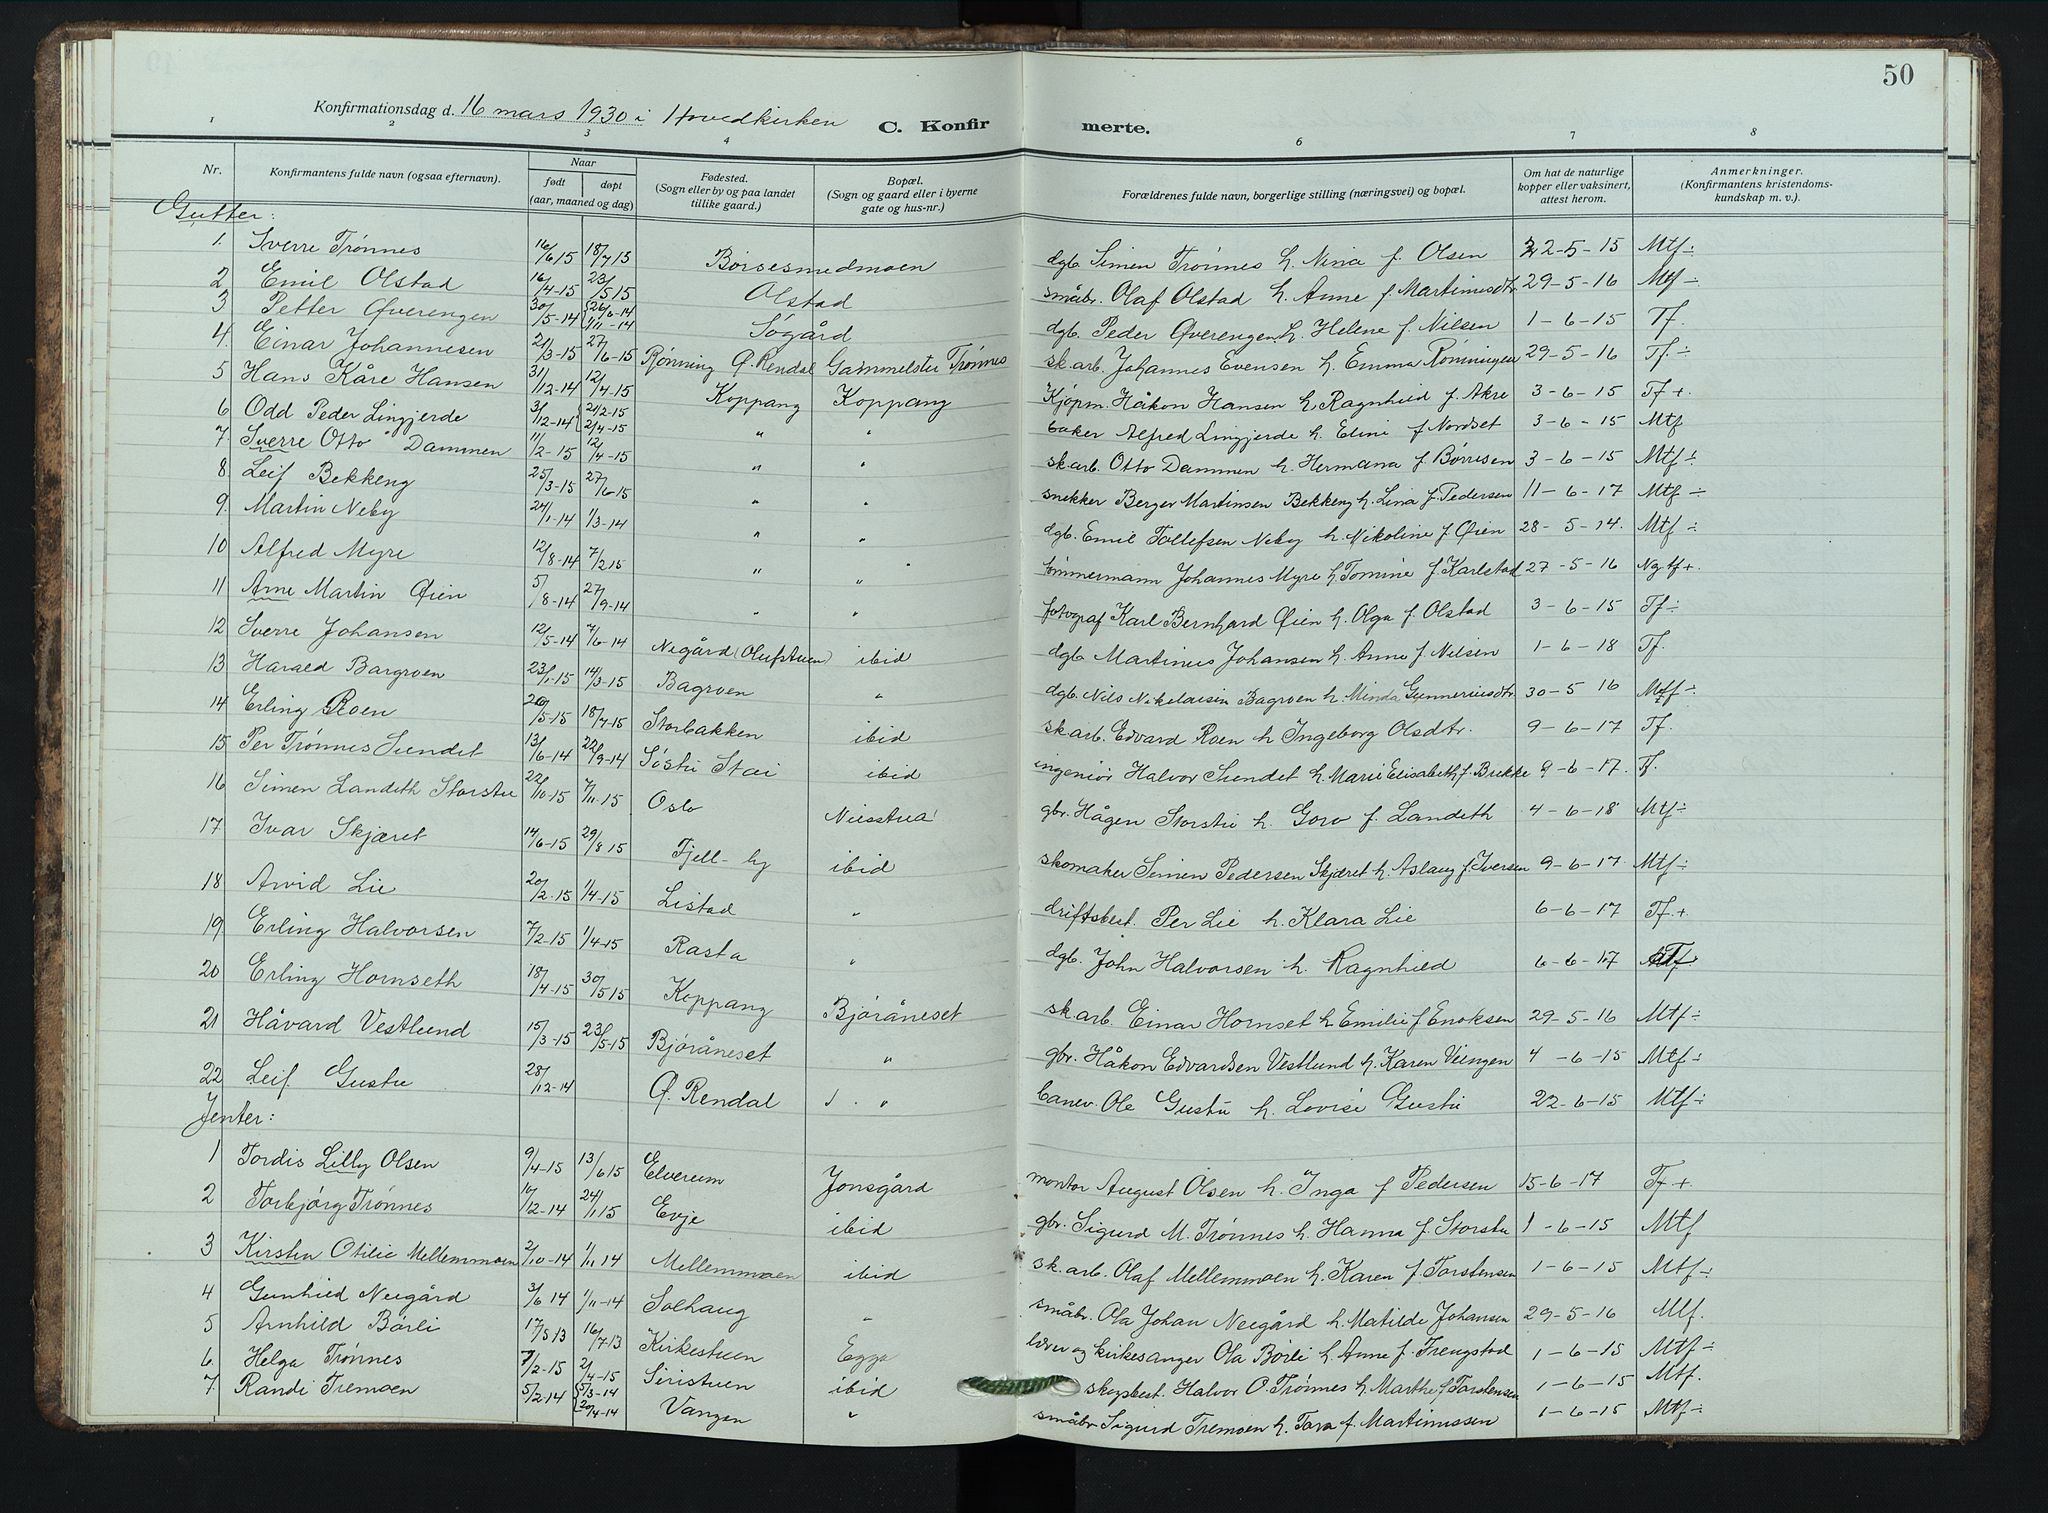 50
Konfirmationsdag d. 16 mars 1930 i Hovedkirken
C. Konfirmerte.
1 2 3 4 6 7 8
Nr.
Konfirmantens fulde navn (ogsaa efternavn).
Naar
født døpt
(aar, maaned og dag)
Fødested.
(Sogn eller by og paa landet
tillike gaard.)
Bopæl.
(Sogn og gaard eller i byerne
gate og hus-nr.)
Forældrenes fulde navn, borgerlige stilling (næringsvei) og bopæl.
Om hat de naturlige
kopper eller vaksinert,
attest herom.
Anmerkninger.
(Konfirmantens kristendoms-
kundskap m. v.).
Gutter:
1. Sverre Trønnes 16/6 15 18/7 15 Børsesmedmoen dgb. Simen Trønnes h. Nina f. Olsen 22-5-15 Mtf÷
2 Emil Olstad 16/4-15 23/5 15 Olstad småbr. Olaf Olstad h. Anne f. Martinusdtr 29-5-16 Mtf÷
3 Petter Øverengen 30/5-14 {26/6-14 1/11-14 Søgård dgb. Peder Øverengen h. Helene f. Nilsen 1-6-15 Tf.
4. Einar Johannesen 21/3-15 27/6-15 Rønning Ø. Rendal Gammelstu Trønnes sk.arb. Johannes Evensen h. Emma Rønningen 29-5-16 Tf.÷
5 Hans Kåre Hansen 31/12-14 12/4-15 Koppang Koppang Kjøpm. Håkon Hansen h. Ragnhild f. Akre 3-6-15 Tf+.
6 Odd Peder Lingjerde 3/12-14 {21/2-15 2/4-15 " " baker Alfred Lingjerde h. Eline f. Nordset 3-6-15 Mtf
7. Sverre Otto Dammen 11/2-15 12/4-15 " " sk.arb. Otto Dammen h. Hermana f. Børresen 3-6-15 Mtf÷
8 Leif Bekkeng 25/3-15 27/6-15 " " snekker Berger Martinsen Bekkeng h. Lina f. Pedersen 11-6-17 Mtf÷
9. Martin Neby 24/1-14 1/3-14 " " dgb. Emil Tollefsen Neby h. Nikoline f. Øien 28-5-14. Mtf÷
10 Alfred Myre 12/8-14 7/2 15 " " tømmermann Johannes Myre h. Tomine f. Karlstad 27-5-16 Ng tf+.
11 Arne Martin Øien 5/8-14 27/9-14 " " fotograf Karl Bernhard Øien h. Olga f. Olstad 3-6-15 Tf÷
12 Sverre Johansen 12/5-14 7/6-14 Negård (Olufstuen) ibid dgb. Martinus Johansen h. Anne f. Nilsen 1-6-18 Tf.
13 Harald Bargroen 23/1-15 14/3-15 Bagroen " dgb. Nils Nikolaisen Bagroen h. Minda Gunneriusdtr. 30-5 16 Mtf÷
14 Erling Roen 20/5-15 18/7-15 Storbakken ibid sk.arb. Edvard Roen h Ingeborg Olsdtr. 9-6-17 Tf.
15 Per Trønnes Sundet 13/6-14 22/9-14 Søstu Stai ibid ingeniør Halvor Sundet h. Marie Elisabeth f. Brekke 9-6-17. Tf.
16 Simen Landeth Storstu 22/10-15 7/11-15 Oslo Nilsstua gbr. Hågen Storstu h. Goro f. Landeth 4-6-18 Mtf÷
17 Ivar Skjæret 14/6-15 29/8 15 Fjell-by ibid skomaker Simen Pedersen Skjæret h. Aslaug f. Iversen 9-6-17 Mtf÷
18 Arvid Lie 20/2-15 1/4-15 Listad " driftsbest. Per Lie h. Klara Lie 6-6-17 Tf.+
19 Erling Halvorsen 7/2-15 1/4-15 Rasta " dgb. John Halvorsen h. Ragnhild 6-6-17 Tf
20 Erling Hornseth 18/4-15 30/5 15 Koppang Bjøråneset sk.arb. Einar Hornset h Emilie f Enoksen 29-5-16 Mtf÷
21 Håvard Vestlund 15/3-15 23/5-15 Bjøråneset " gbr. Håkon Edvardsen Vestlund h. Karen Veingen 4-6-15 Mtf÷
22 Leif Gustu 28/12-14 Ø. Rendal " banev. Ole Gustu h. Lovise Gustu 22-6-15 Mtf÷
Jenter:
1 Tordis Lilly Olsen 9/4-15 13/6 15 Elverum Jonsgård montør August Olsen h. Inga f Pedersen 15-6-17 Tf+
2 Torbjørg Trønnes 16/12-14 24/1 15 Evje ibid gbr. Sigurd M. Trønnes h. Hanna f. Storstu 1-6-15 Mtf
3 Kirsten Otilie Mellemmoen 2/10-14 1/11 14 Mellemmoen ibid sk.arb. Olaf Mellemmoen h. Karen f. Torstensen 1-6-15 Mtf÷
4 Gunhild Neegård 3/6 14 1/11-14 Solhaug " småbr. Ola Johan Neegård h. Matilde Johansen 29-5-16 Mtf.
5 Arnhild Børli 17/5 13 16/7-13 Kirkestuen Egga lærer og kirkesanger Ola Børli h. Anne f. Trengstad 1-6-15 Mtf÷
6. Helga Trønnes 7/2-15 2/4-15 Siristuen ibid skogsbest. Halvor O. Trønnes h. Marthe f Torstensen 1-6-15 Mtf.
7. Randi Tremoen 5/2 14 {5/3-14 20/4-14 Vangen " småbr Sigurd Tremoen h. Tora f. Martinussen 1-6-15 Mtf÷